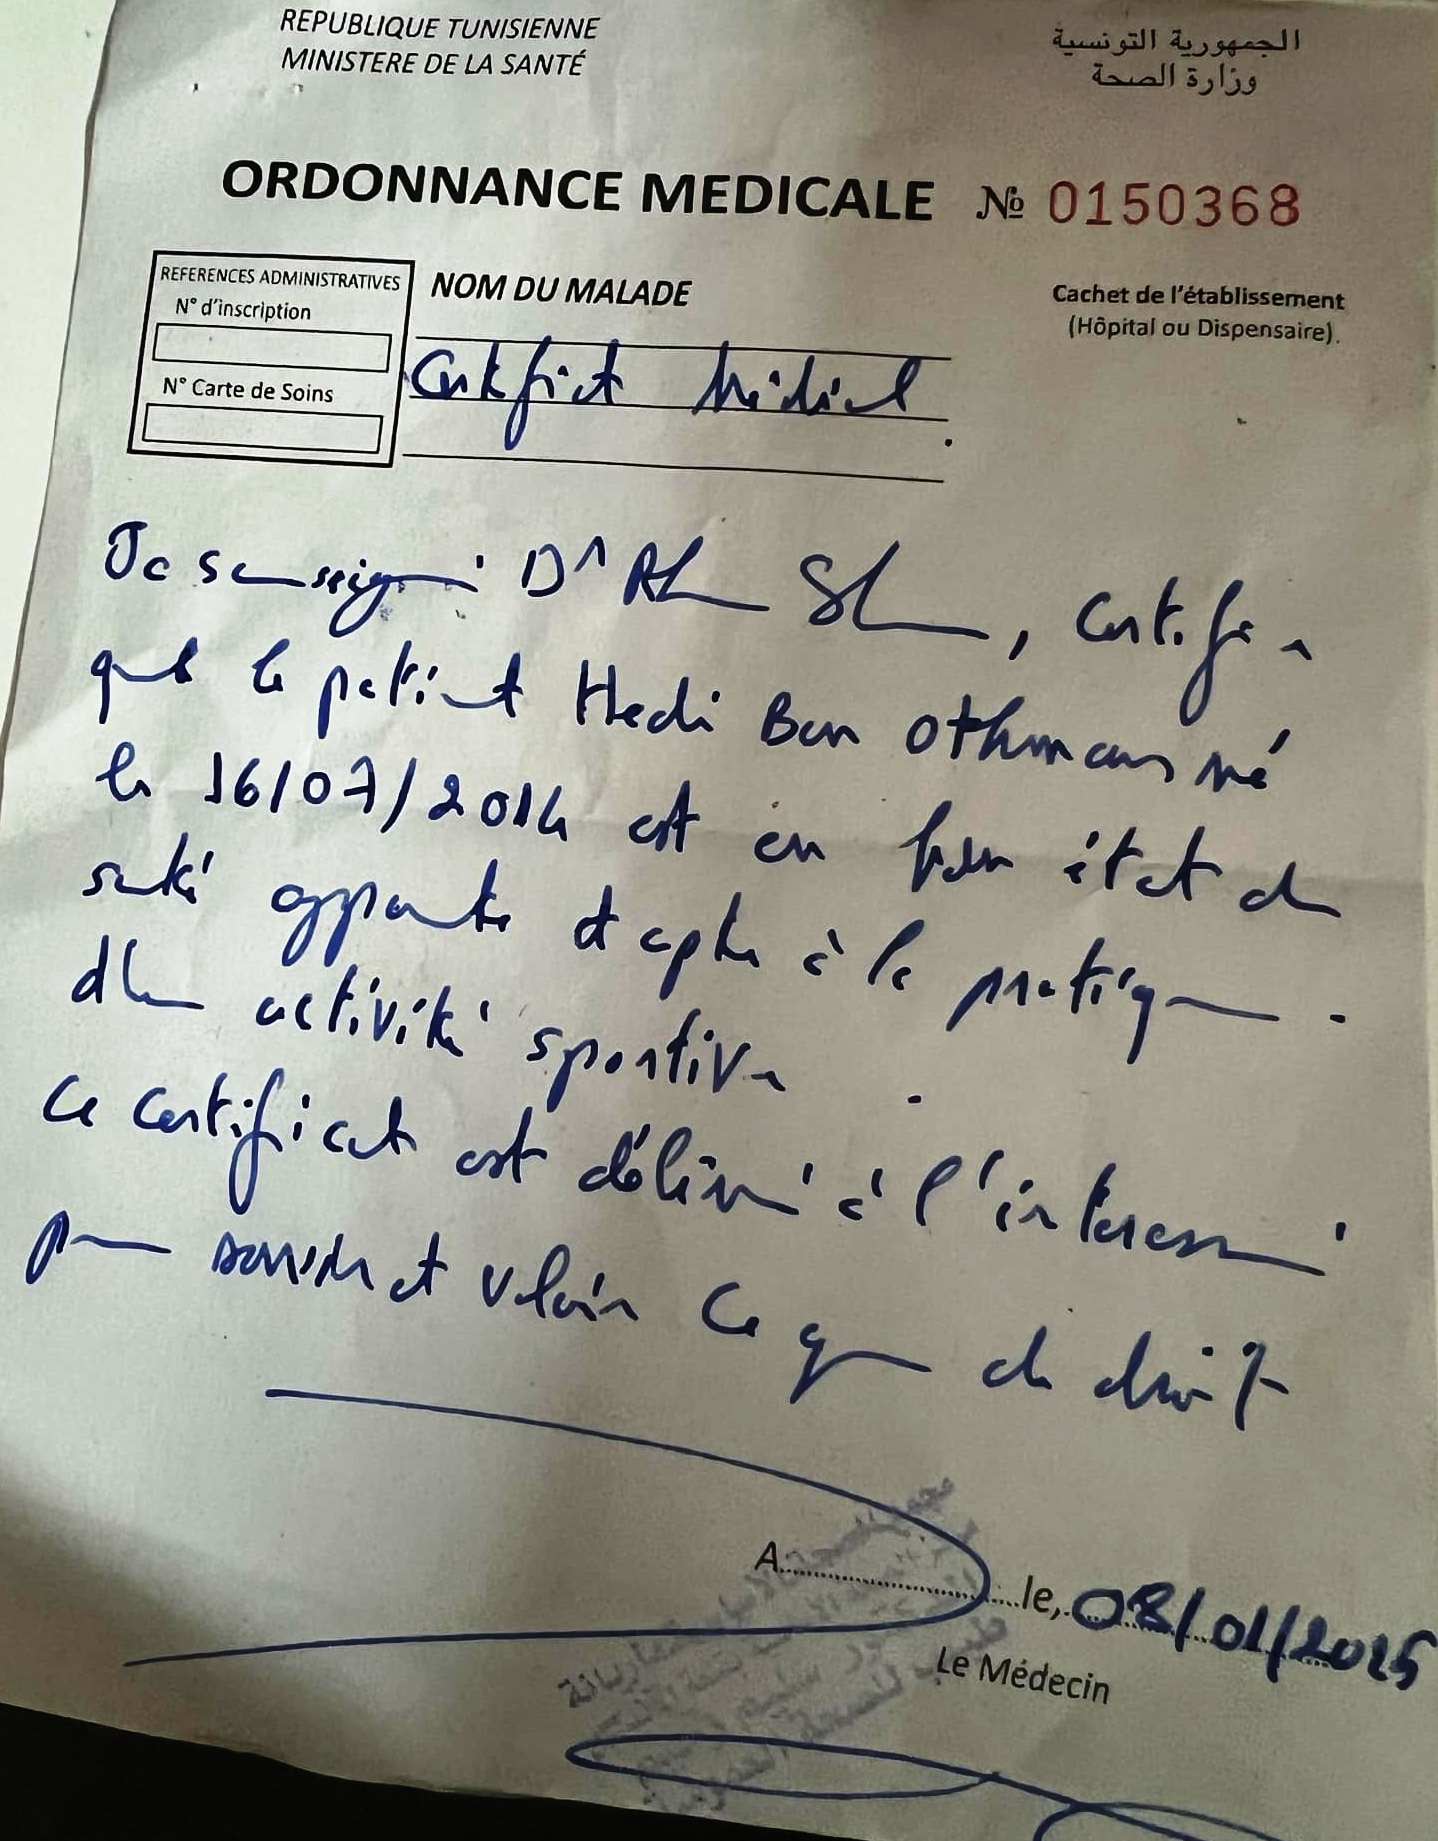 REPUBLIQUE TUNISIENNE
MINISTERE DE LA SANTÉ
الجمهورية التونسية
وزارة الصحة
ORDONNANCE MEDICALE № 0150368
REFERENCES ADMINISTRATIVES
N° d'inscription
N° Carte de Soins
NOM DU MALADE
Cachet de l'établissement
(Hôpital ou Dispensaire).
Certificat Médical
Je soussigné Dr, certifie
que le patient Hedi Ben Othman né
le 16/07/2014 est en bon état de
santé apparente et apte à la pratique.
d'une activité sportive.
Ce certificat est délivré à l'interessé
pour servir et valoir ce que de droit
A le, 08/01/2025
Le Médecin